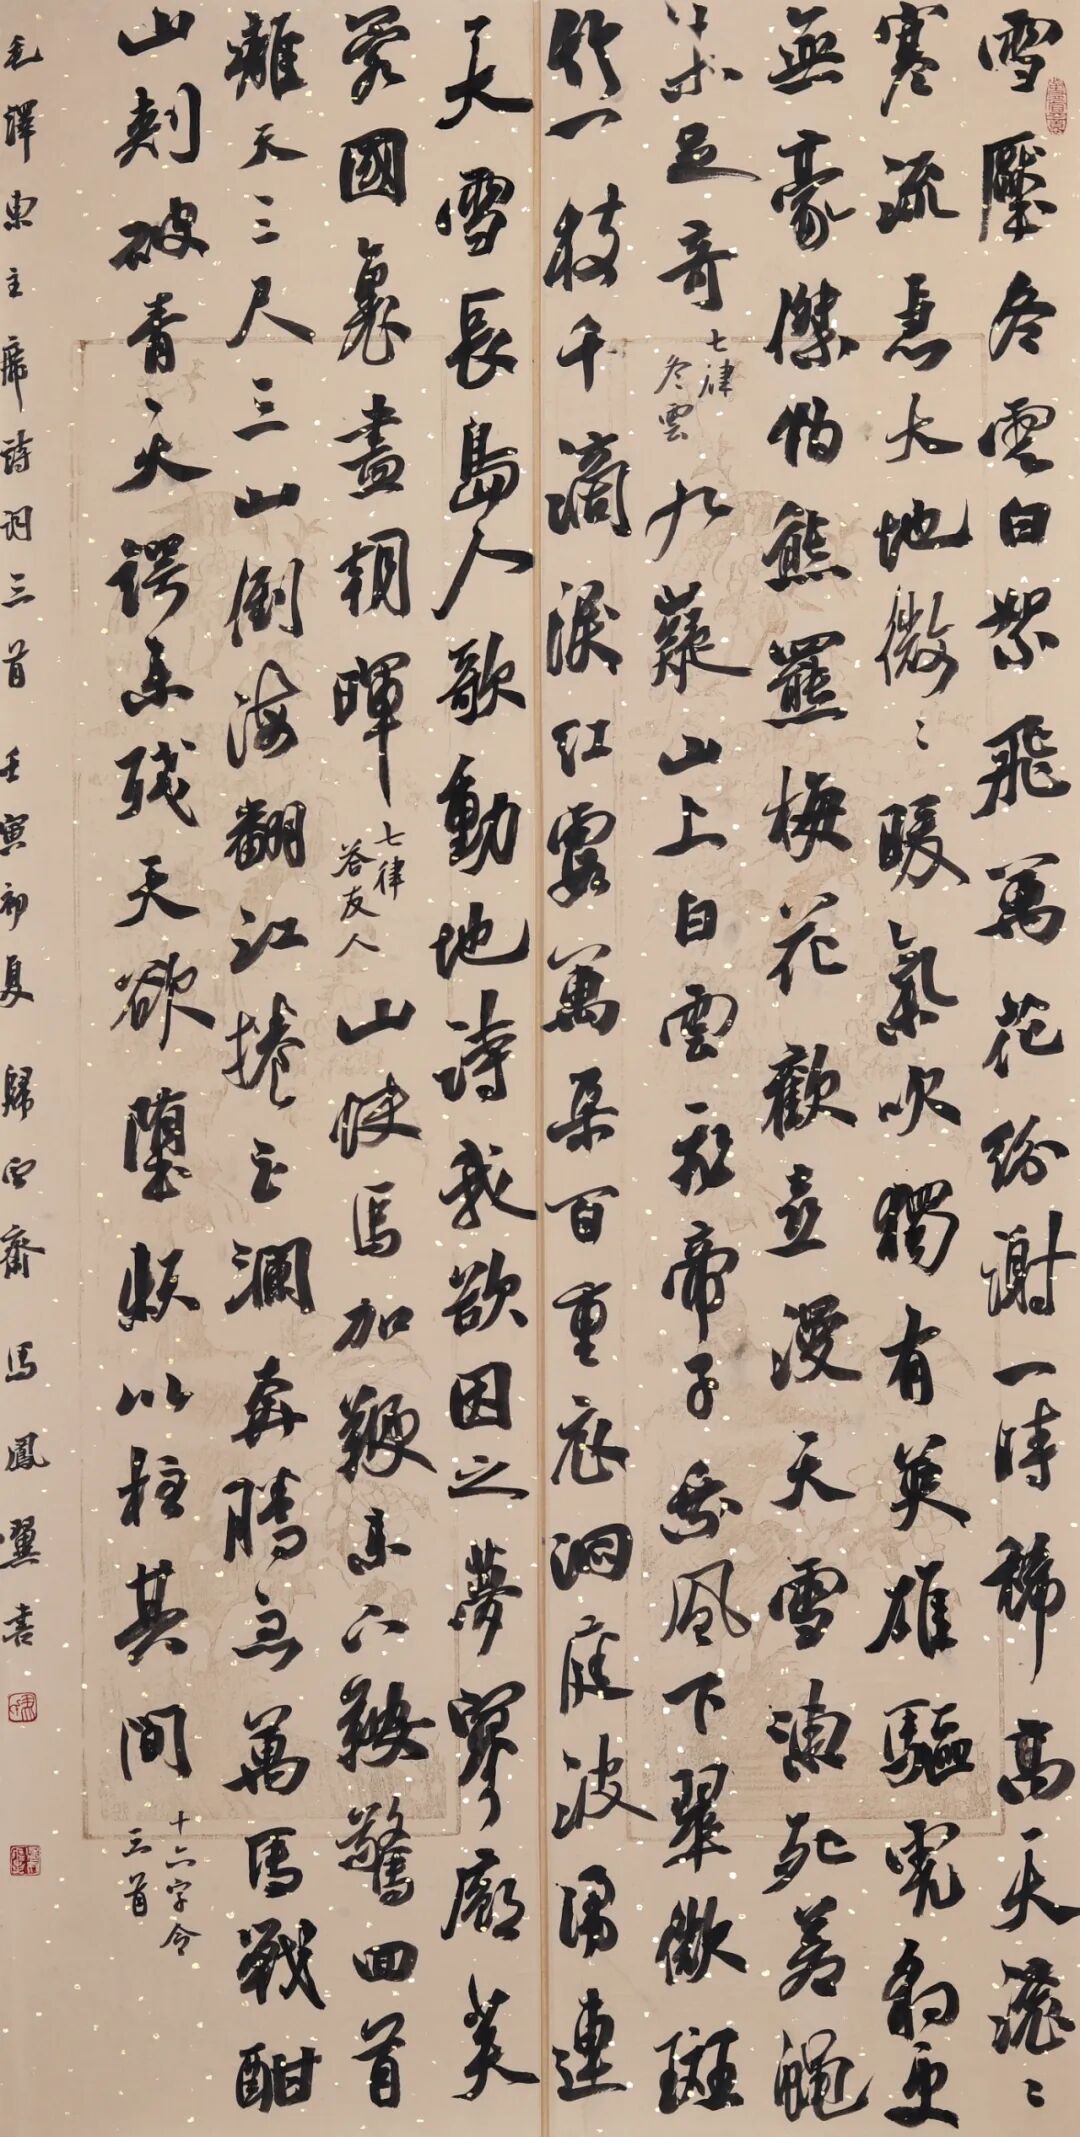 雪壓冬雲白絮飛萬花紛謝一時稀高天滾〻
寒流急大地微〻暖氣吹獨有英雄驅虎豹更
無豪傑怕熊羆梅花歡喜漫天雪凍死蒼蠅
未足奇
七律
冬雲
九嶷山上白雲飛帝子乘風下翠微斑
竹一枝千滴淚紅霞萬朵百重衣洞庭波湧連
天雪長島人歌動地詩我欲因之夢寥廓芙
蓉國裏盡朝暉
七律
答友人
山快馬加鞭未下鞍驚回首
離天三尺三山倒海翻江捲巨瀾奔騰急萬馬戰酣
山刺破青天鍔未殘天欲墮賴以拄其間
十六字令
三首
毛澤東主席詩詞三首 壬寅初夏 歸 齋 馬鳳翼書